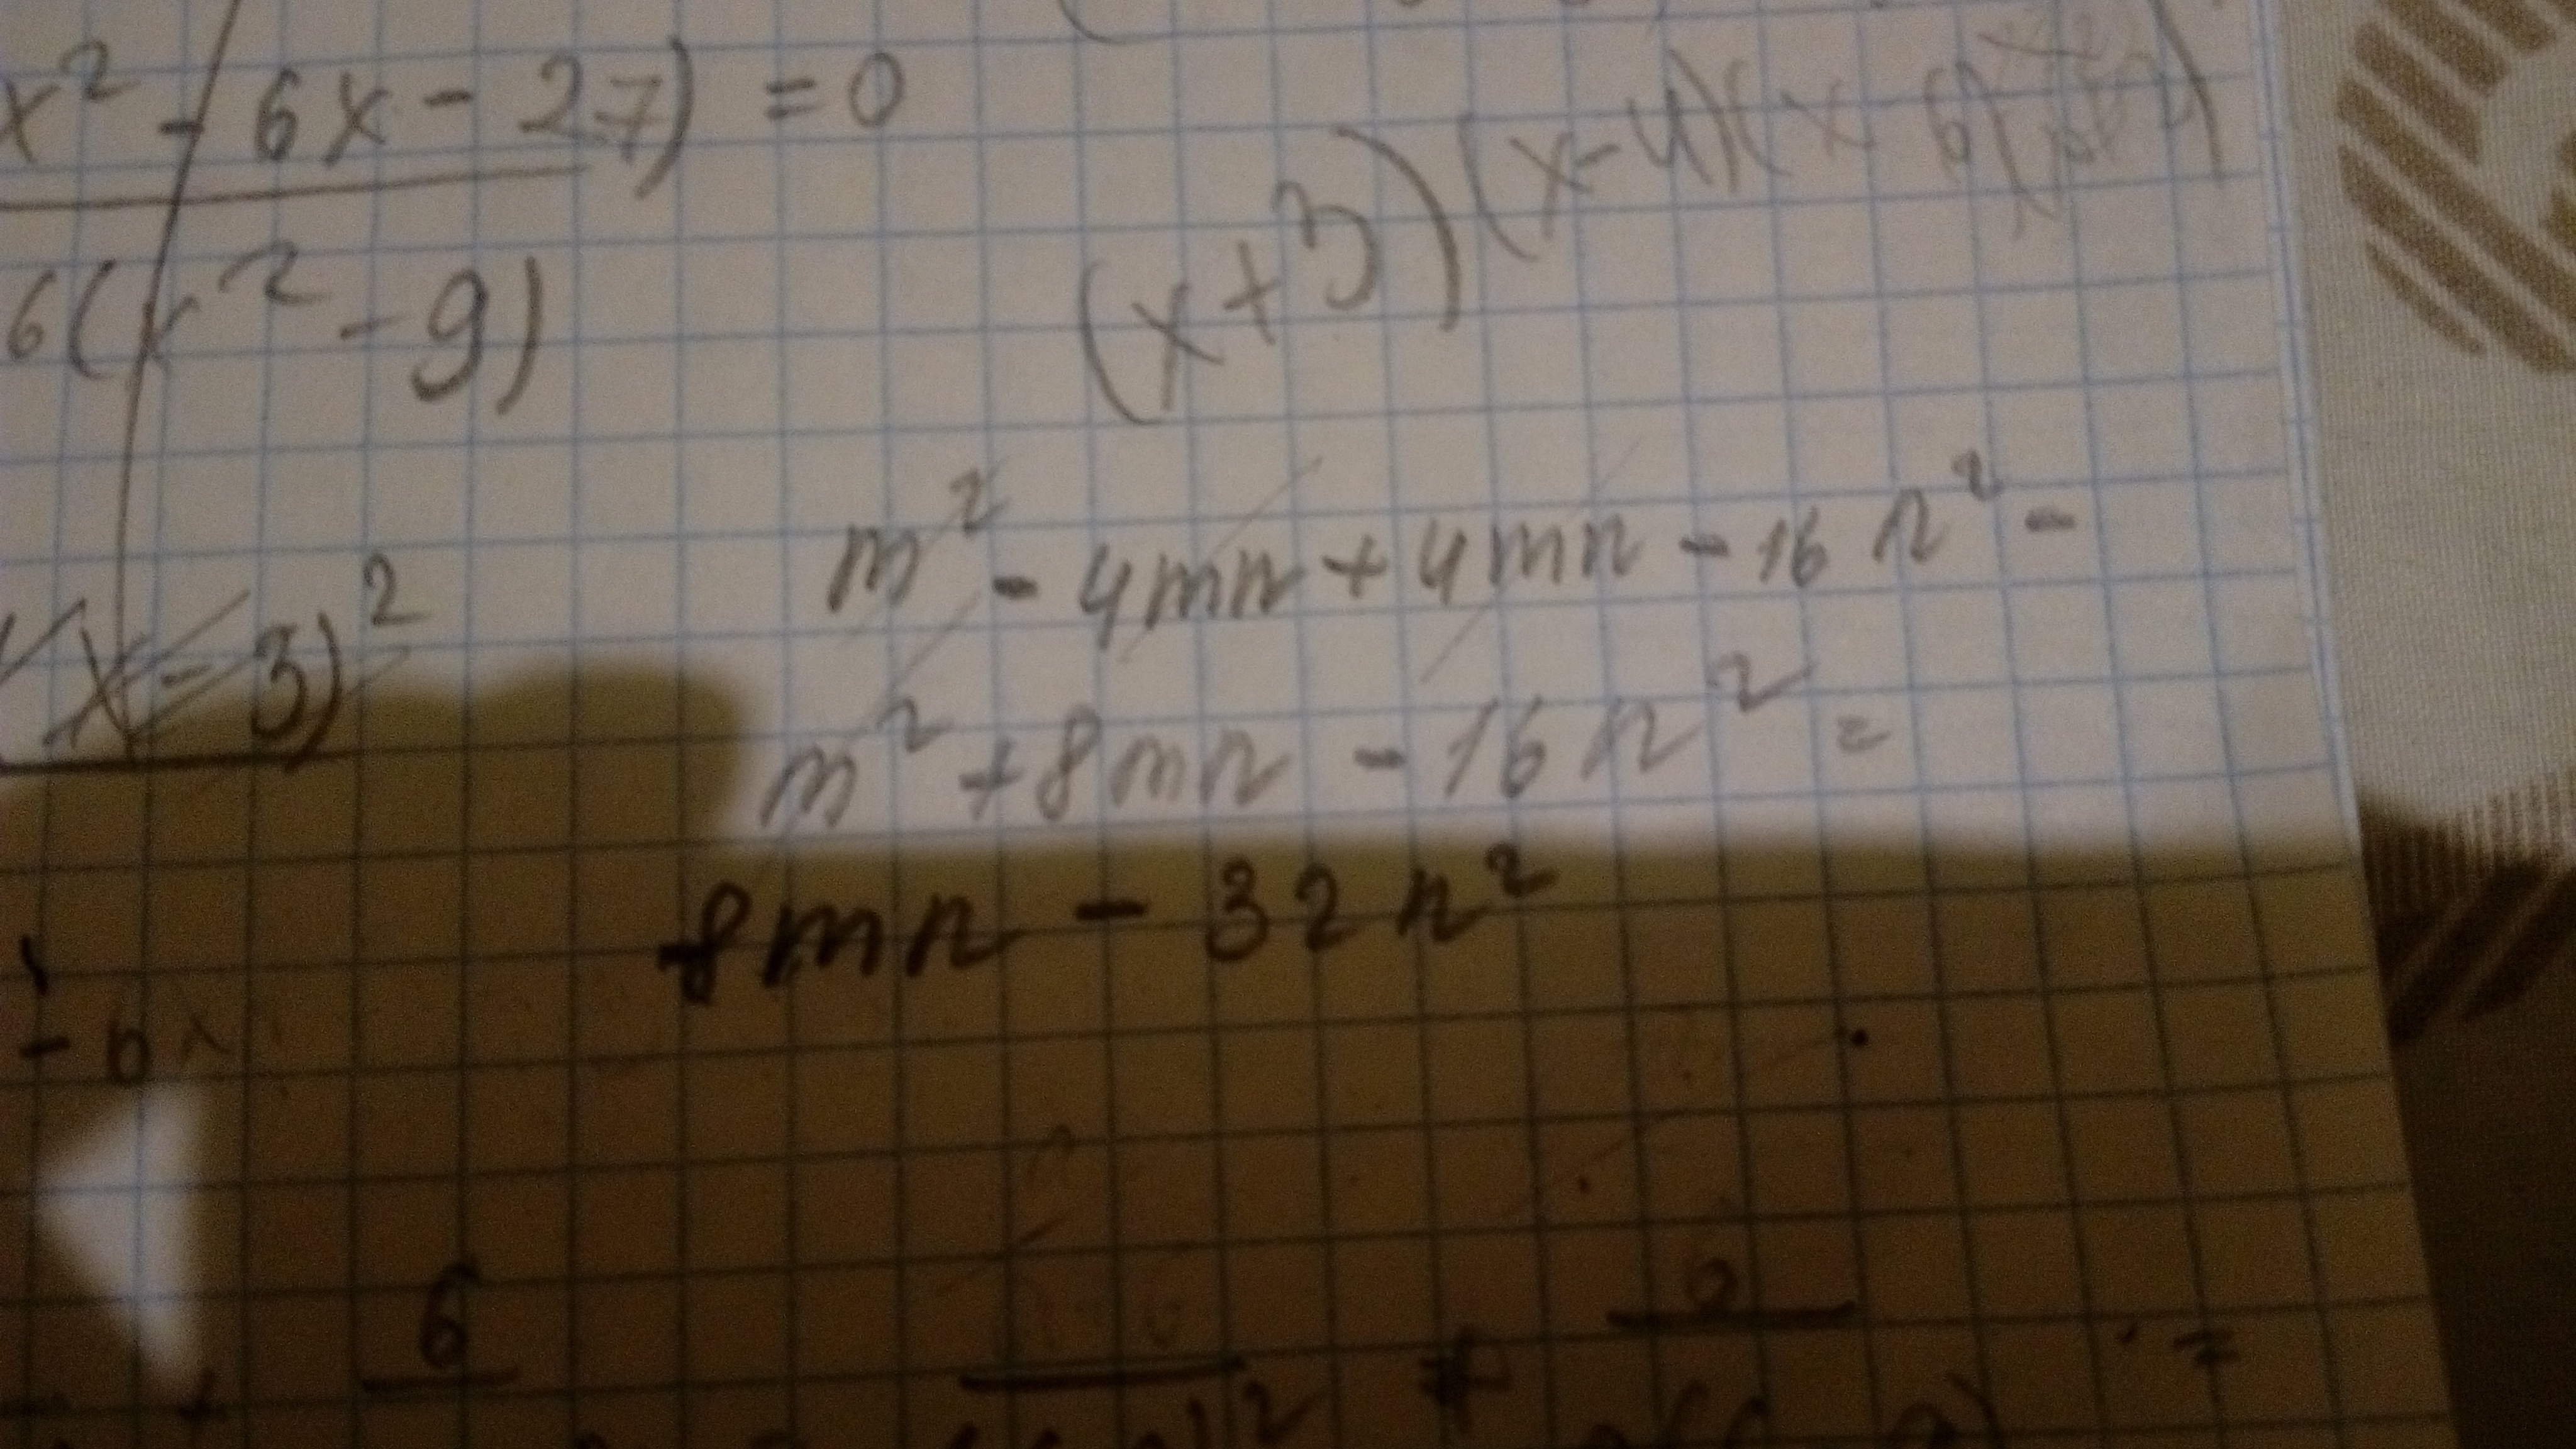 x² - 6x - 27) = 0
6(x² - 9)
(x+3)(x-4)(x-6)
(x-3)²
m² - 4mn + 4mn - 16n² -
m² + 8mn - 16n² =
8mn - 32n²
- 6x
6